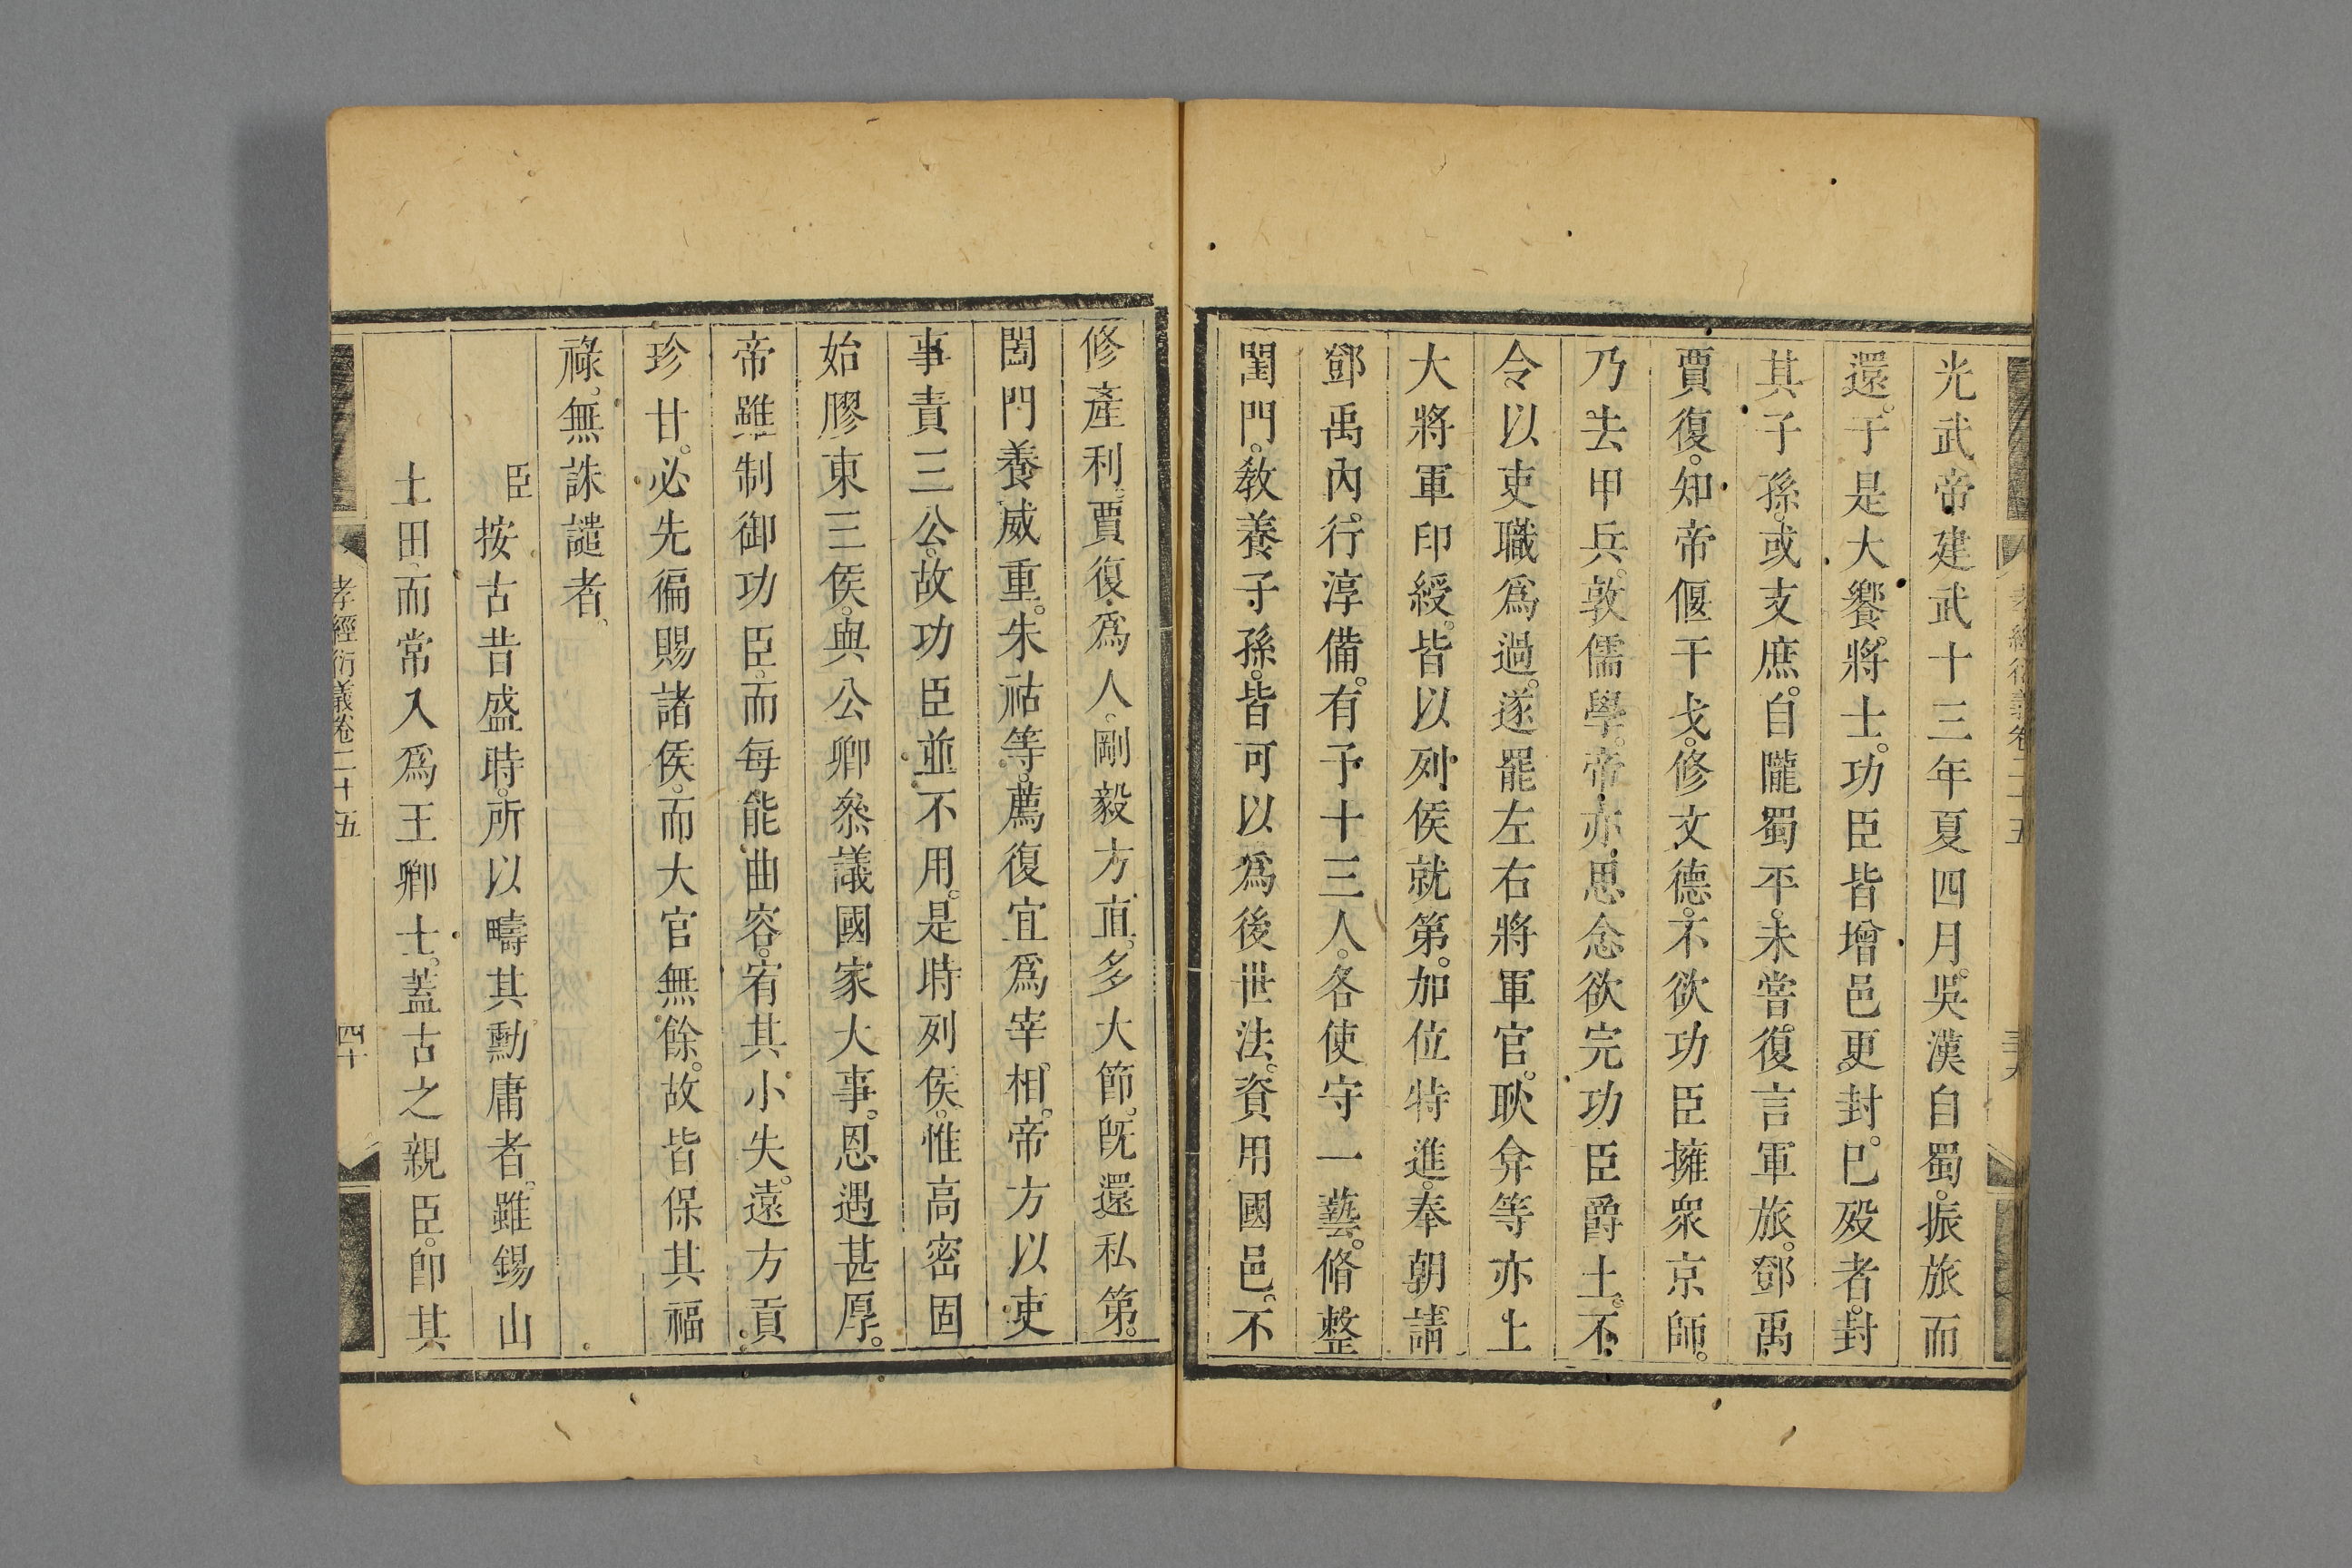 孝經衍義卷二十五
三十九
光武帝建武十三年夏四月。吳漢自蜀。振旅而
還。于是大饗。將士。功臣皆增邑更封。巳歿者。封
其子孫。或支庶。自隴蜀平。未嘗復言軍旅。鄧禹
賈復。知帝偃干戈。修文德。不欲功臣擁衆京師。
乃去甲兵。敦儒學。帝亦思念欲完功臣爵土。不
令以吏職爲過。遂罷左右將軍官。耿弇等亦上
大將軍印綬。皆以列侯就第。加位特進。奉朝請
鄧禹內。行淳備。有予十三人。各使守一藝。脩整
閨門。敎養子孫。皆可以爲後世法。資用國邑。不
修產利。賈復爲人。剛毅方直。多大節。旣還私第。
闔門養威重。朱祜等。薦復宜爲宰相。帝方以吏
事責三公。故功臣並不用。是時列侯。惟高密固
始膠東三侯。與公卿叅議國家大事。恩遇甚厚。
帝雖制御功臣。而每能曲容。宥其小失。遠方貢
珍甘。必先徧賜諸侯。而大官無餘。故皆保其福
祿。無誅譴者、
臣按古昔盛時。所以疇其勳庸者。雖錫山
土田、而常入爲王卿士。蓋古之親臣。卽其
孝經衍義卷二十五
四十